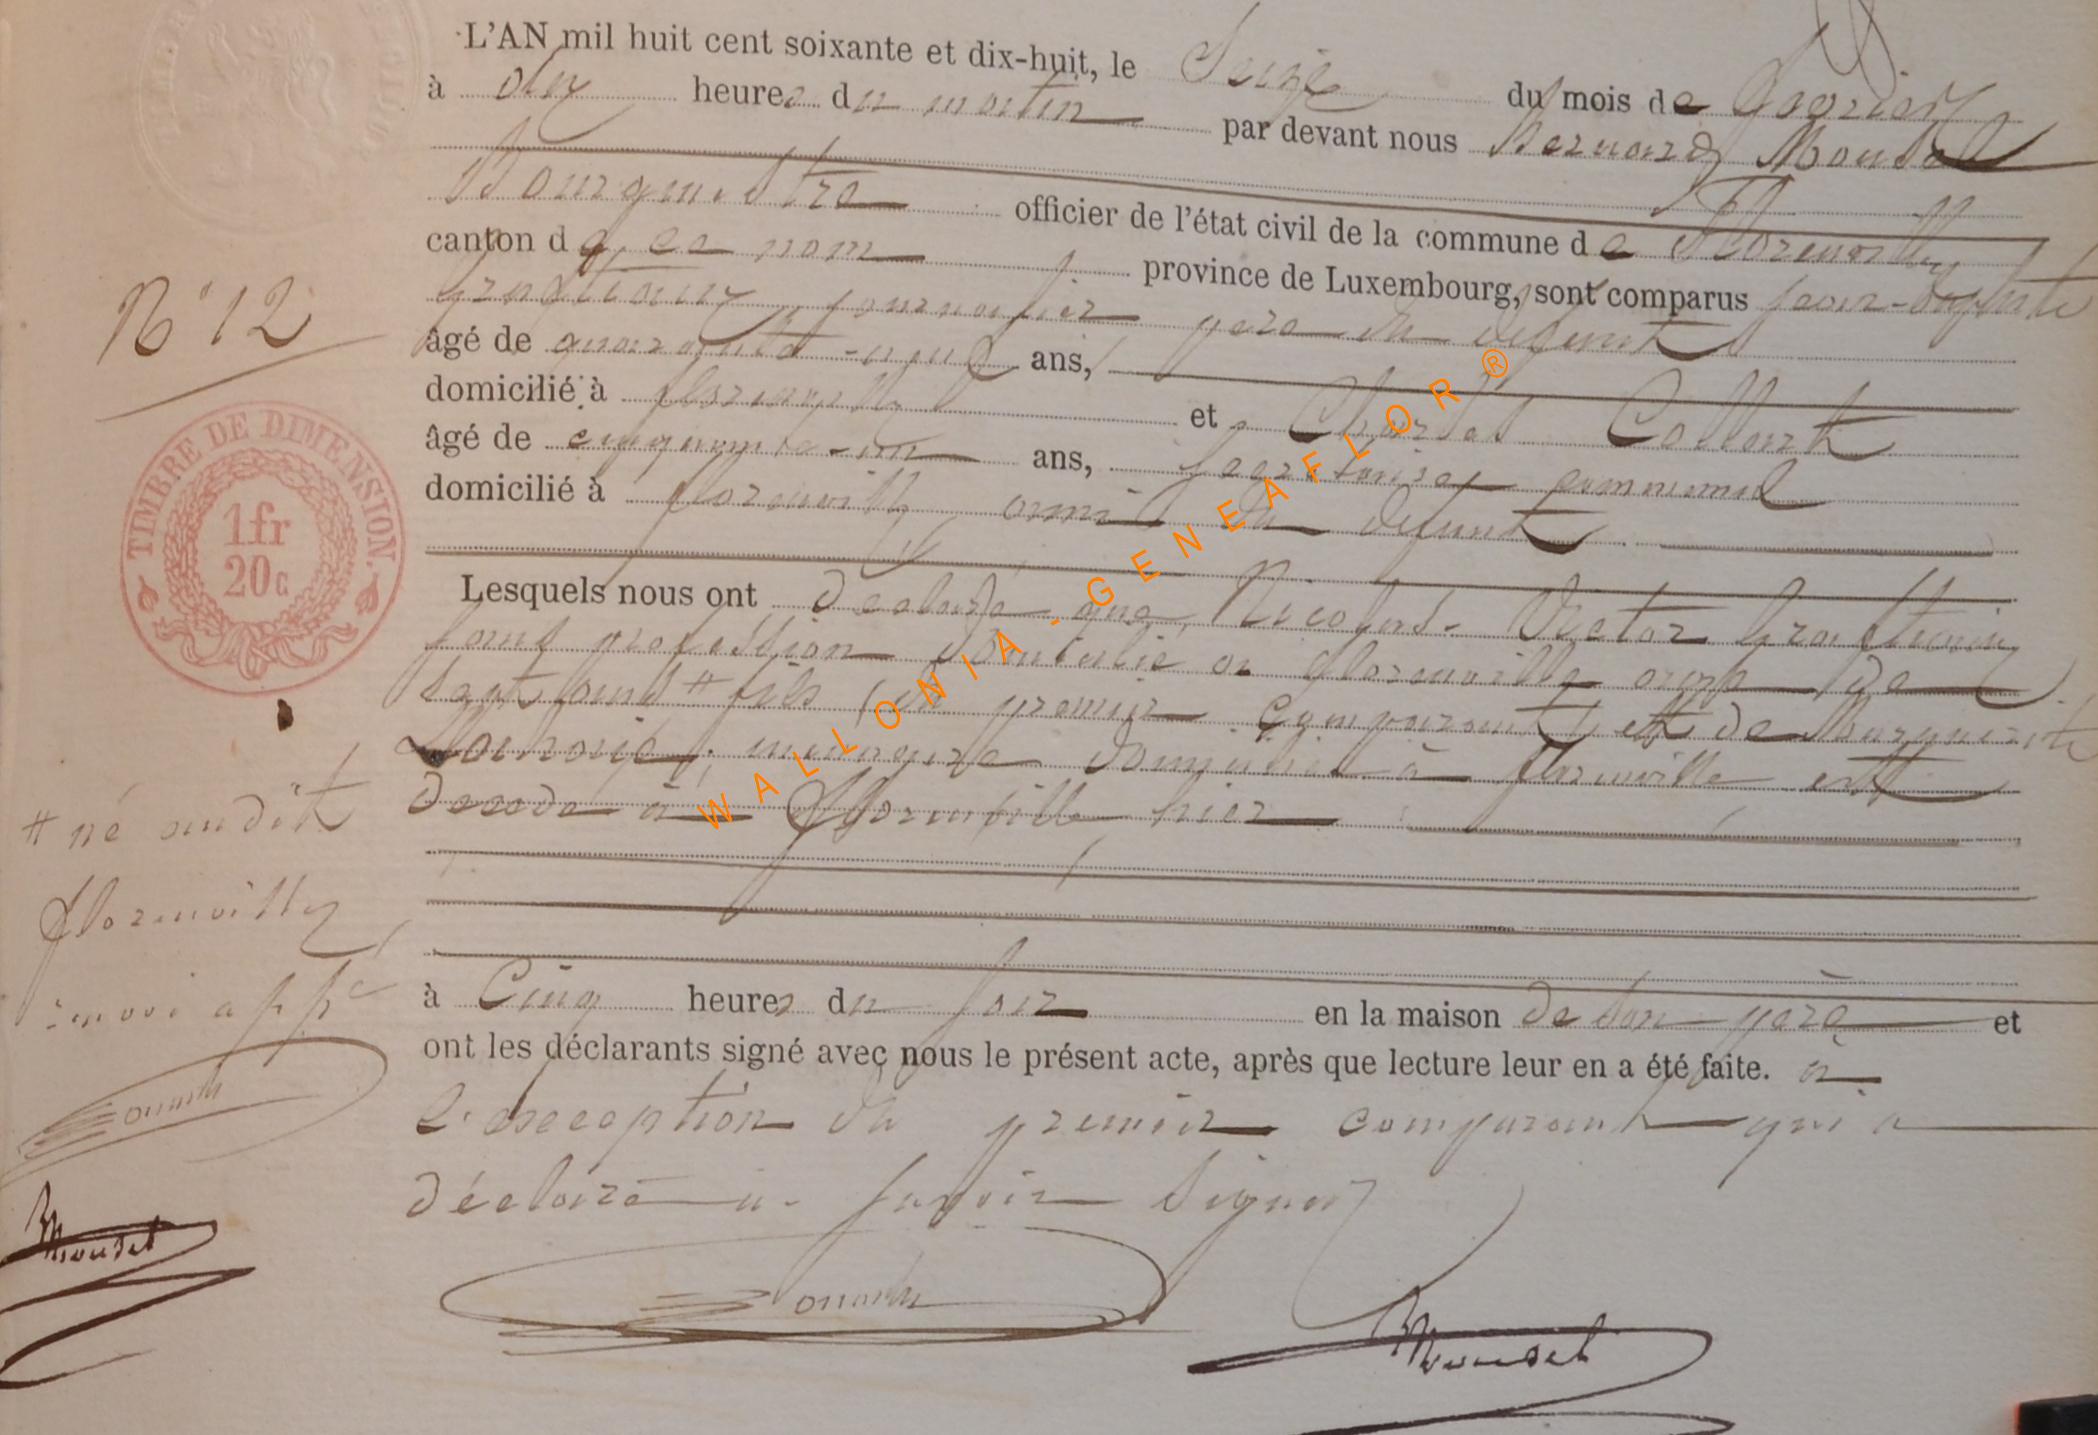 L'AN mil huit cent soixante et dix-huit, le Seize du mois de
à dix heures du matin par devant nous Bernard
Bourgmestre officier de l'état civil de la commune de Florenville
canton de ce nom province de Luxembourg, sont comparus Jean-Baptiste
journalier père du défunt
âgé de quarante-neuf ans,
domicilié à florenville et Charles Collart
âgé de cinquante-un ans, secrétaire communal
domicilié à florenville ami du défunt
Lesquels nous ont déclaré que Nicolas-Victor
sans profession domicilié à florenville âgé de
sept ans # fils du premier comparant et de Marguerite
ménagère domiciliée à florenville est
décédé à Florenville hier
à Cinq heures du soir en la maison de son père et
ont les déclarants signé avec nous le présent acte, après que lecture leur en a été faite. à
l'exception du premier comparant qui a
déclaré ne savoir signer
N° 12
TIMBRE DE DIMENSION.
1fr
20c
# né audit
florenville
WALLONIA-GENEAFLOR®